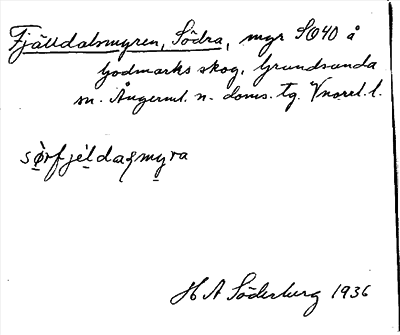 Fjälldalsmyren, Södra, myr SO40 å
Godmarks skog, Grundsunda
sn. Ångerml. n. doms. tg. Vnorrl. l.
sørfjeldaşmyra
H A Söderberg 1936